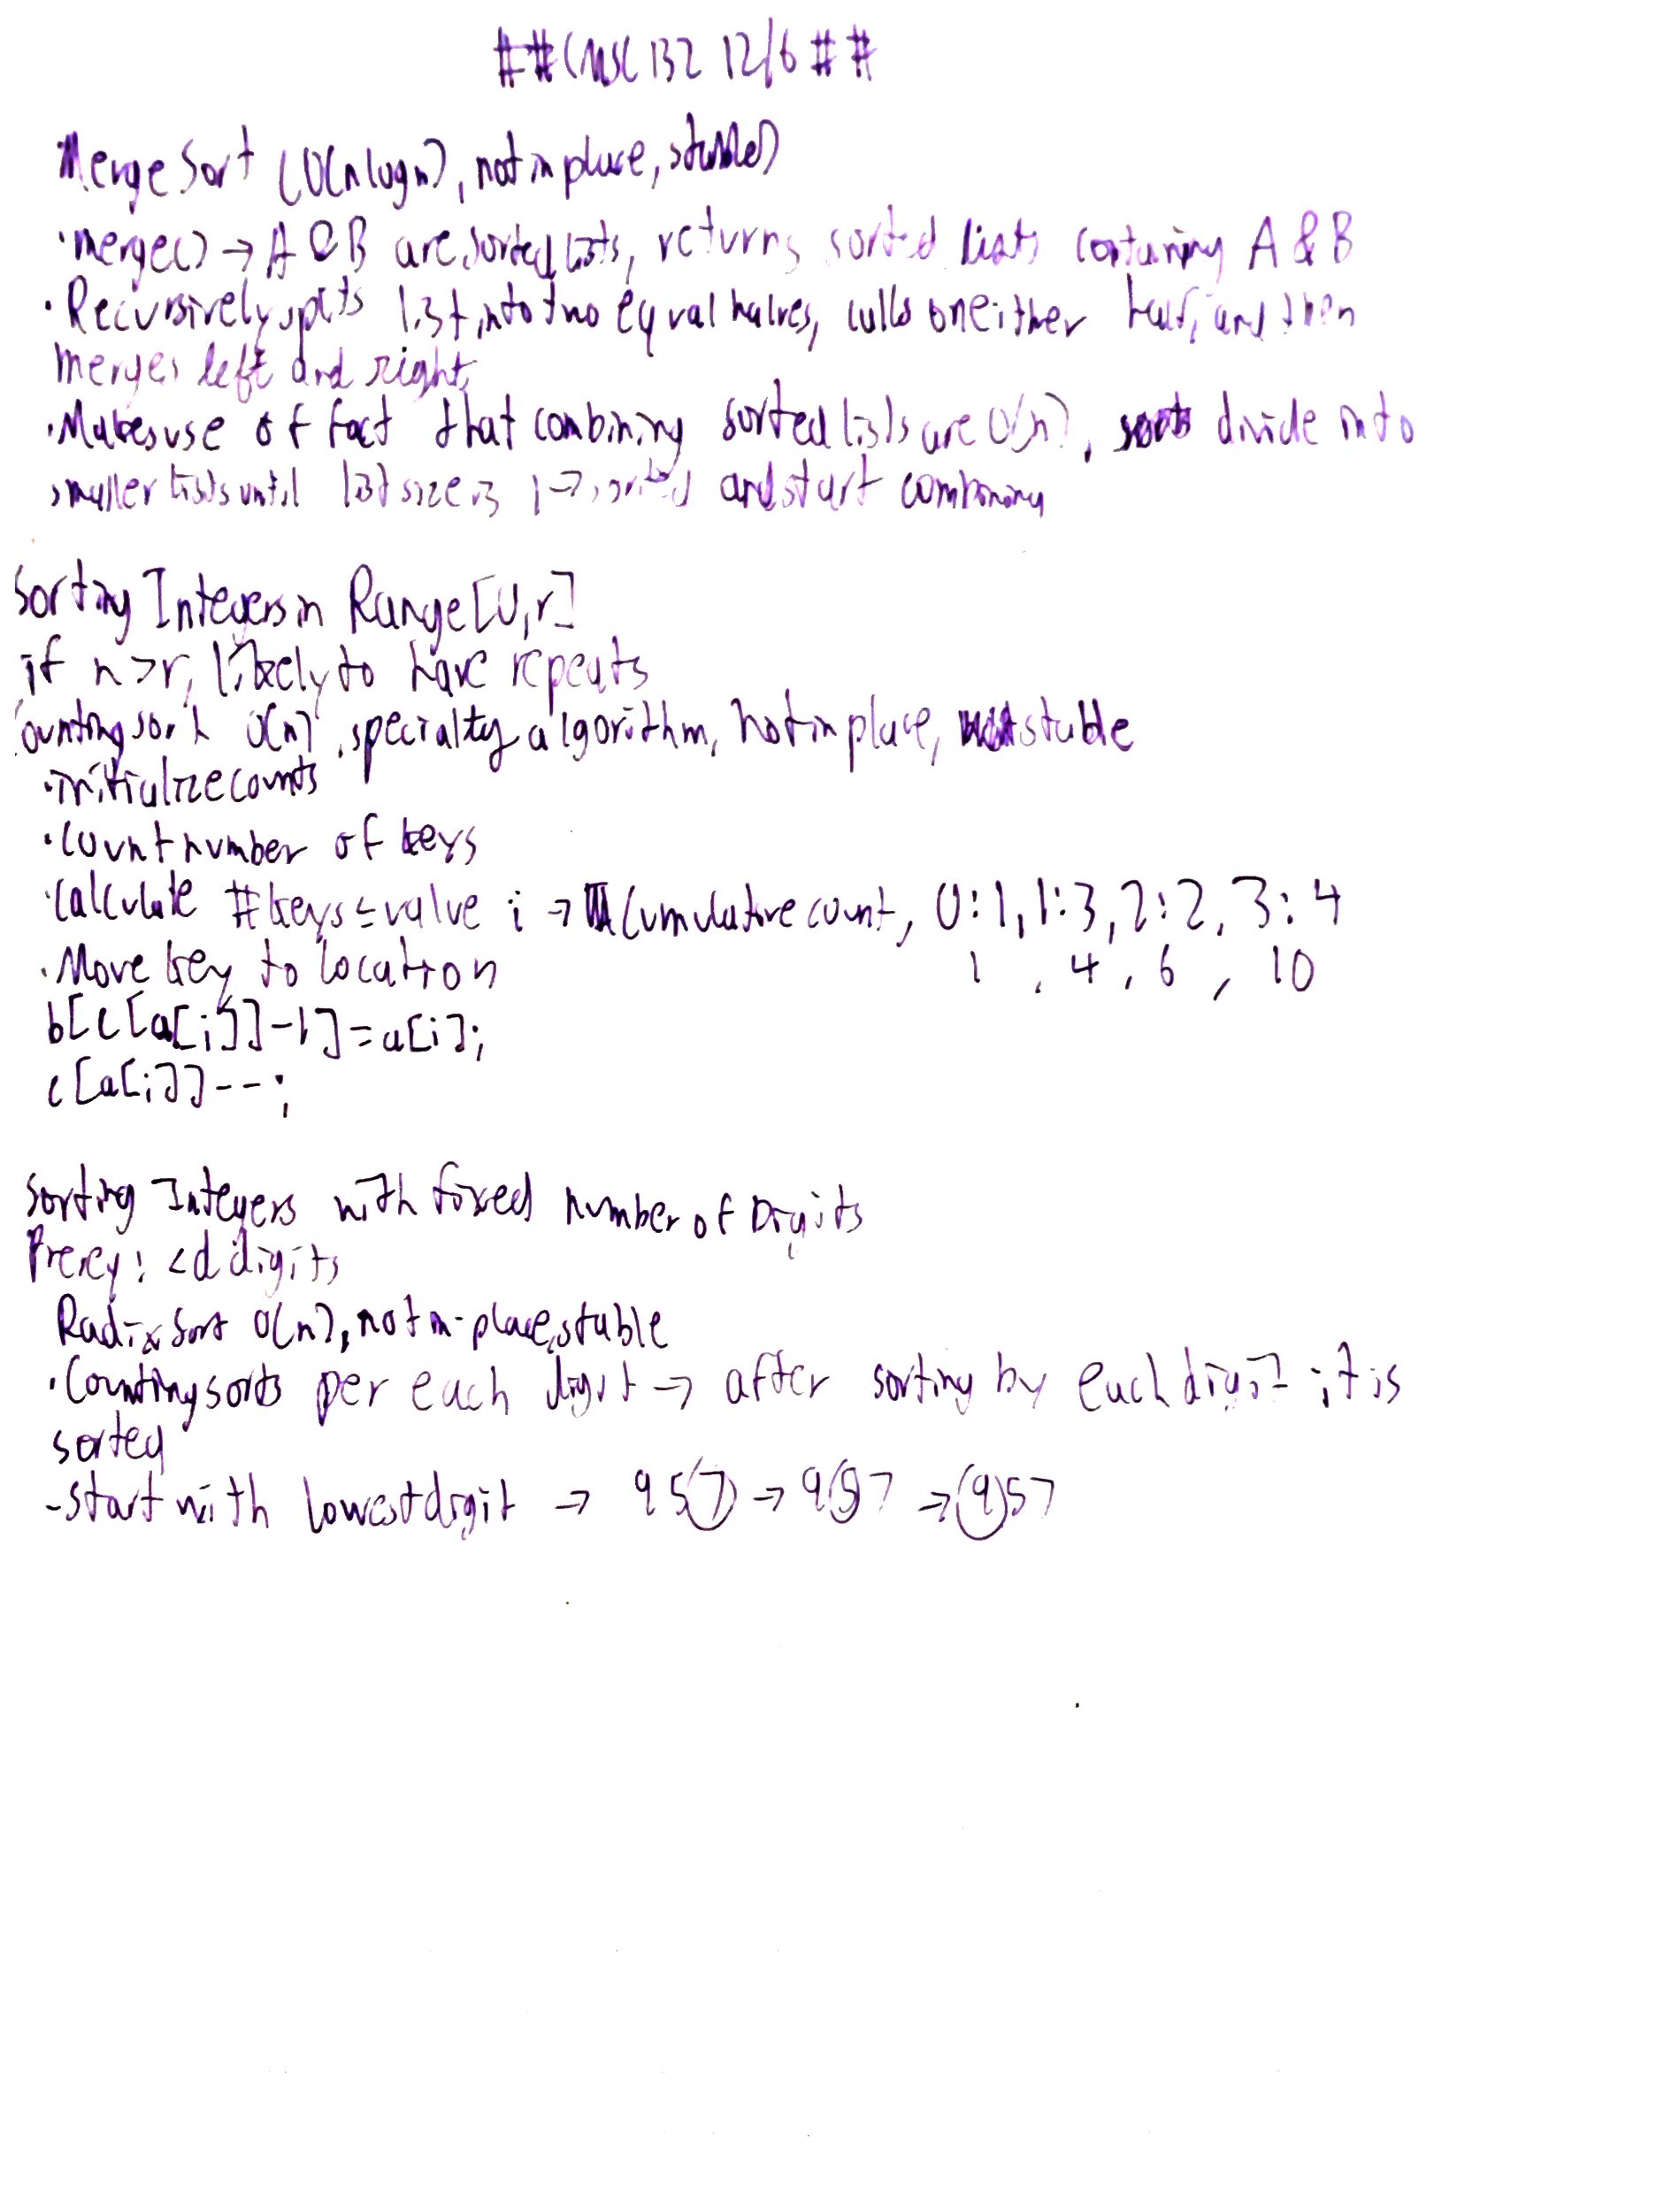 ##CMSC 132 12/6##
Merge Sort (O(n log n), not in place, stable)
·merge() → A & B are sorted lists, returns sorted lists containing A & B
·Recursively splits list into two equal halves, calls on either half, and then
merges left and right
·Makes use of fact that combining sorted lists are O(n), divide into
smaller lists until list size is 1 → sorted and start combining
Sorting Integers in Range [0,r]
if n>r, likely to have repeats
Counting sort O(n), specialty algorithm, not in place, stable
·initialize counts
·Count number of keys
·Calculate #keys ≤ value i → Cumulative count, 0:1, 1:3, 2:2, 3:4
1, 4, 6, 10
·Move key to location
b[c[a[i]]-1]=a[i];
c[a[i]]--;
Sorting Integers with fixed number of Digits
<d digits
Radix Sort O(n), not in-place, stable
·Counting sorts per each digit → after sorting by each digit it is
sorted
-start with lowest digit → 957 → 957 → 957